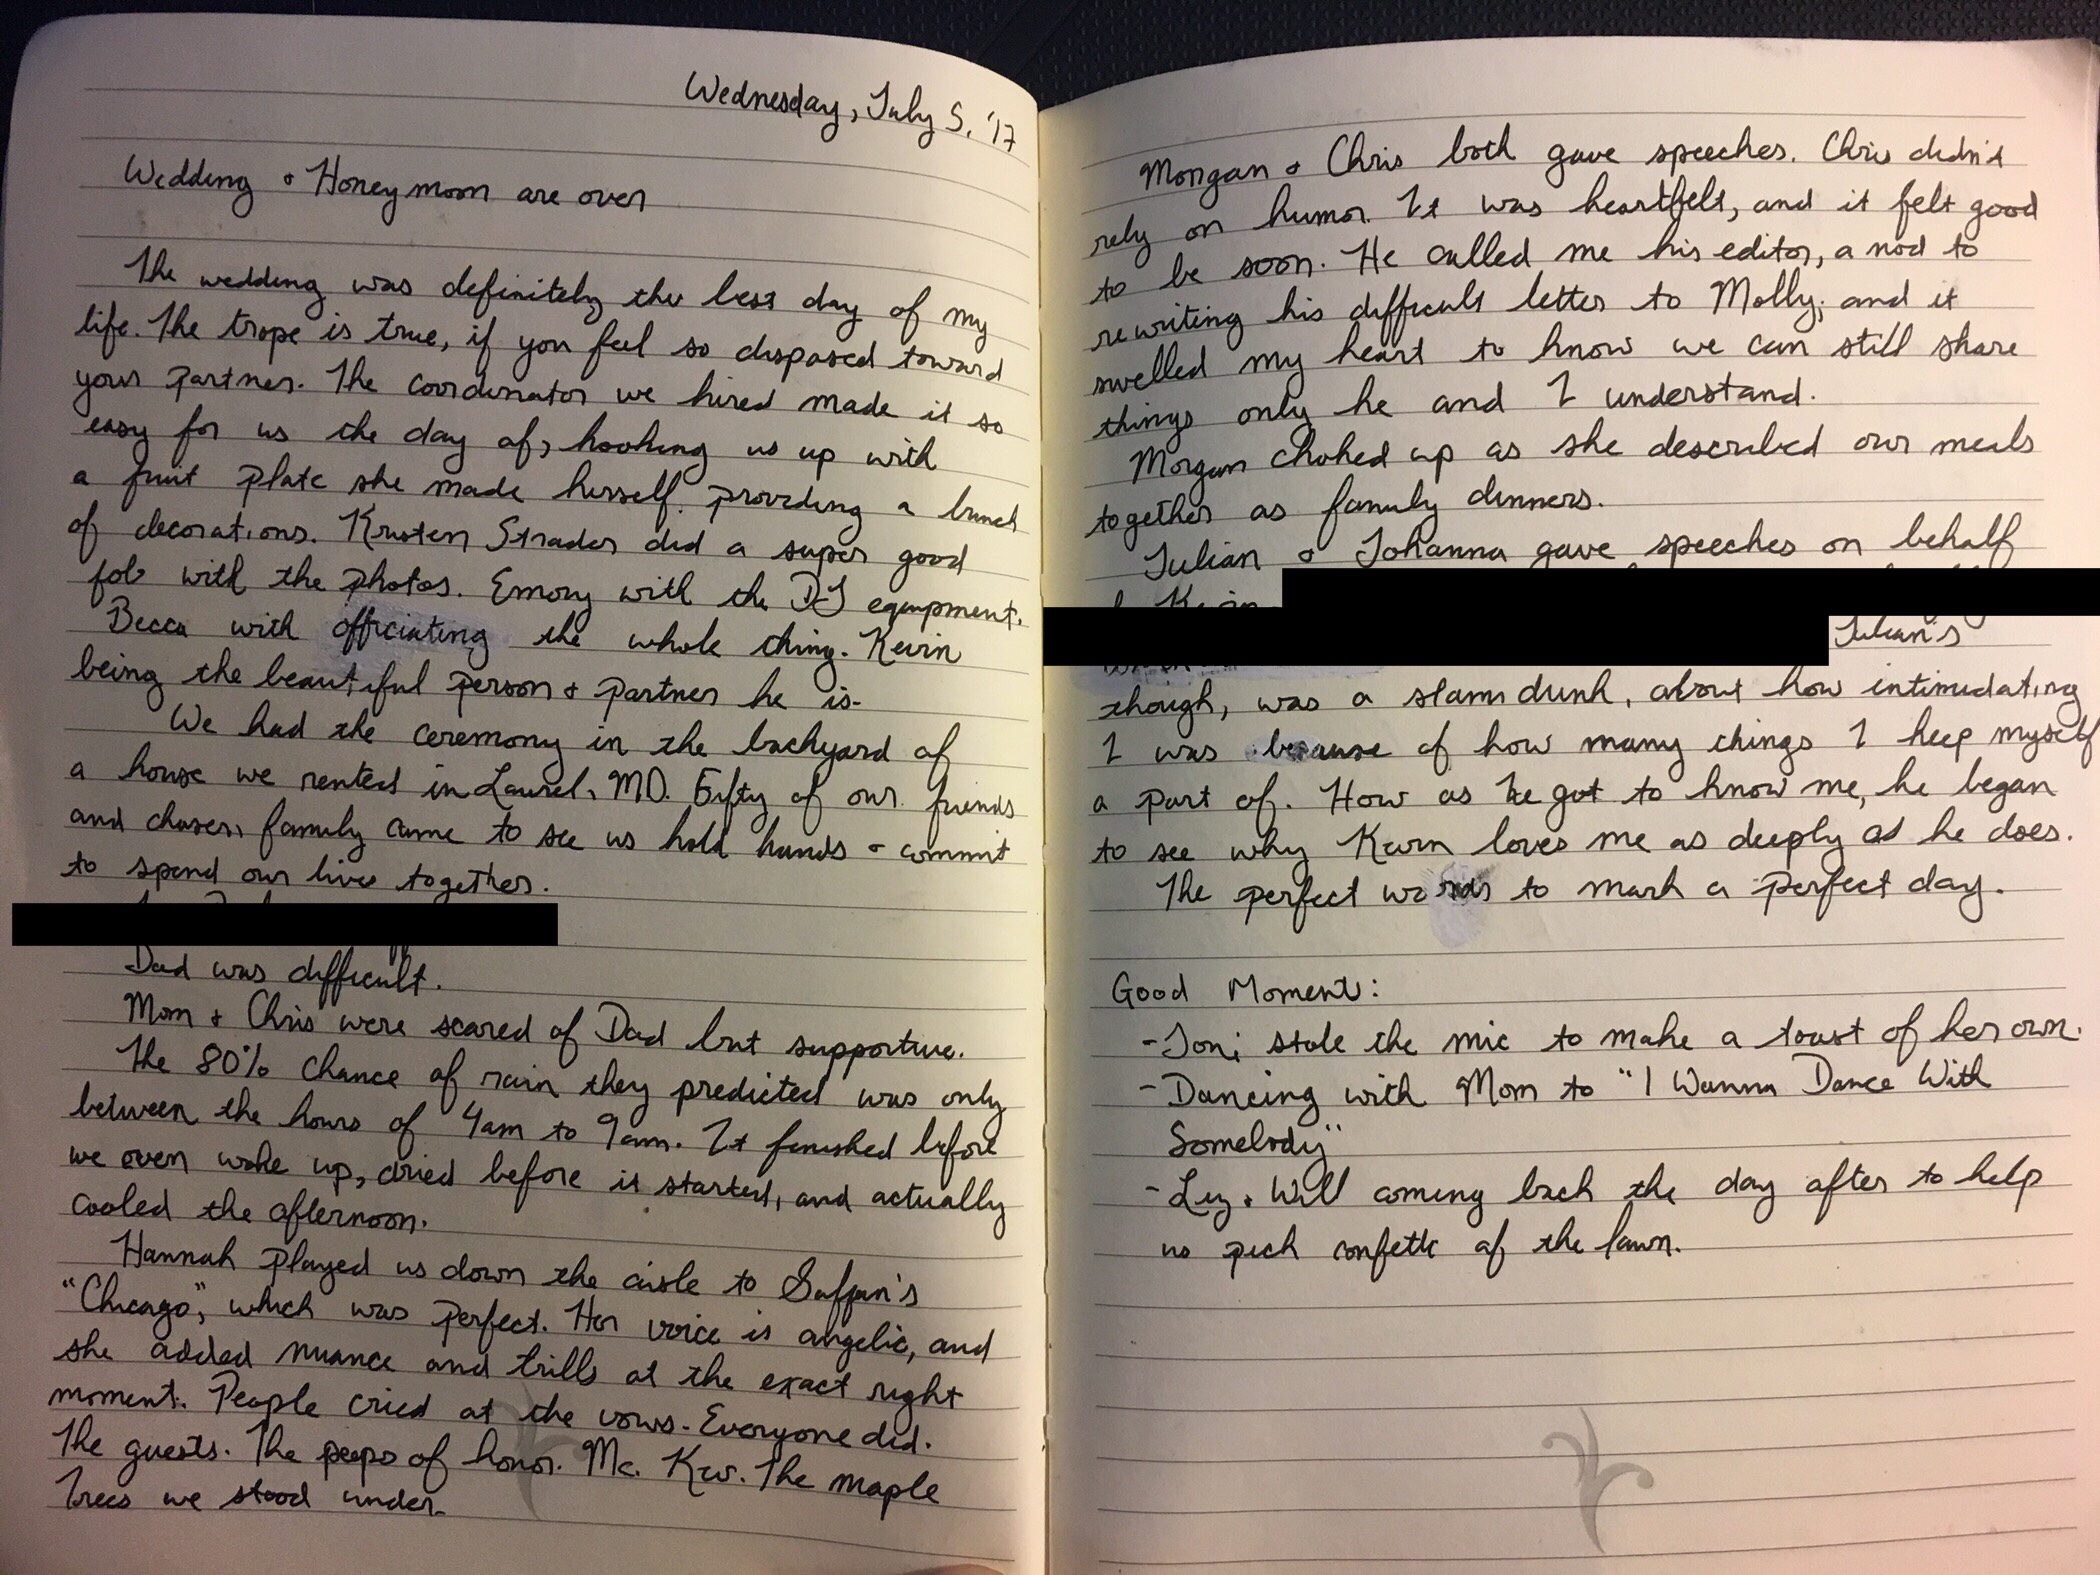 Wednesday, July 5, '17
Wedding + Honeymoon are over
The wedding was definitely the best day of my
life. The trope is true, if you feel so disposed toward
your partner. The coordinator we hired made it so
easy for us the day of, hooking us up with
a fruit plate she made herself, providing a bunch
of decorations. Kristen Strader did a super good
job with the photos. Emory with the DJ equipment.
Becca with officiating the whole thing. Kevin
being the beautiful person + partner he is.
We had the ceremony in the backyard of
a house we rented in Laurel, MD. Fifty of our friends
and chosen family came to see us hold hands + commit
to spend our lives together.
Dad was difficult.
Mom + Chris were scared of Dad but supportive.
The 80% chance of rain they predicted was only
between the hours of 4am to 9am. It finished before
we even woke up, dried before it started, and actually
cooled the afternoon.
Hannah played us down the aisle to Sufjan's
"Chicago", which was perfect. Her voice is angelic, and
she added nuance and trills at the exact right
moment. People cried at the vows. Everyone did.
The guests. The peeps of honor. Me. Kev. The maple
trees we stood under.
Morgan + Chris both gave speeches. Chris didn't
rely on humor. It was heartfelt, and it felt good
to be soon. He called me his editor, a nod to
rewriting his difficult letter to Molly, and it
swelled my heart to know we can still share
things only he and I understand.
Morgan choked up as she described our meals
together as family dinners.
Julian + Johanna gave speeches on behalf
Kevin
Julian's
though, was a slam dunk, about how intimidating
I was because of how many things I keep myself
a part of. How as he got to know me, he began
to see why Kevin loves me as deeply as he does.
The perfect words to mark a perfect day.
Good Moment:
- Joni stole the mic to make a toast of her own.
- Dancing with Mom to "I Wanna Dance With
Somebody"
- Liz + Will coming back the day after to help
us pick confetti of the lawn.